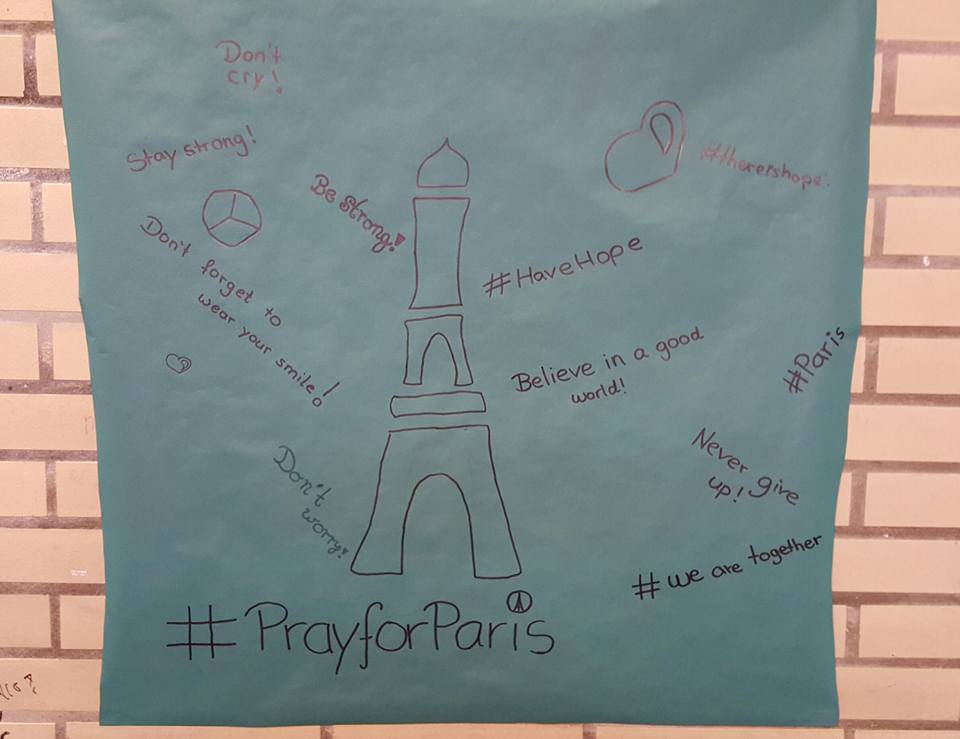 Don't
cry!
Stay strong!
Be strong!
#therershope.
Don't forget to
wear your smile!
#HaveHope
Believe in a good
world!
#Paris
Don't
worry!
Never give
up!
#we are together
#PrayforParis